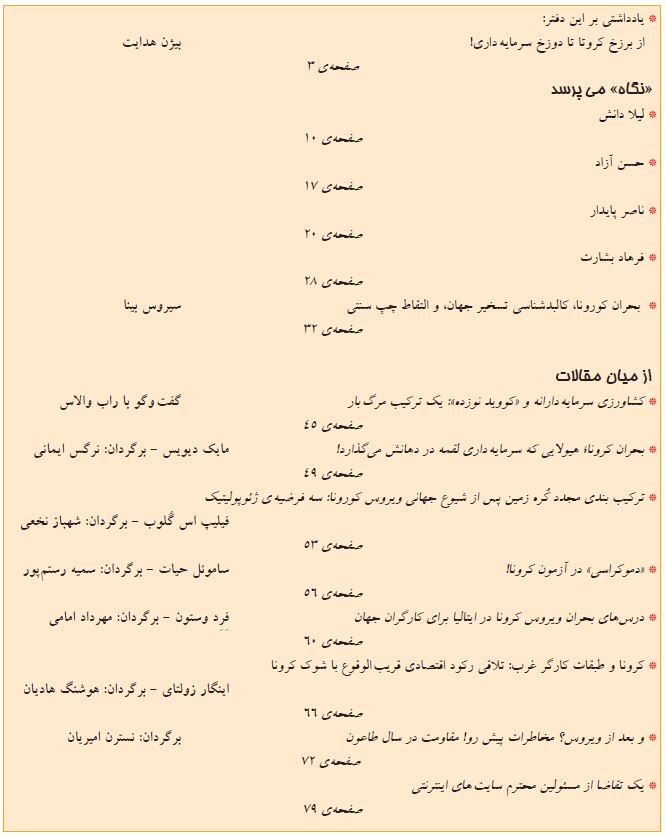 * یادداشتی بر این دفتر:
از برزخ کرونا تا دوزخ سرمایه داری! بیژن هدایت
صفحه‌ی ۳
«نگاه» می پرسد
* لیلا دانش
صفحه‌ی ۱۰
* حسن آزاد
صفحه‌ی ۱۷
* ناصر پایدار
صفحه‌ی ۲۰
* فرهاد بشارت
صفحه‌ی ۲۸
* بحران کورونا، کالبدشناسی تسخیر جهان، و التقاط چپ سنتی سیروس بینا
صفحه‌ی ۳۲
از میان مقالات
* کشاورزی سرمایه دارانه و «کووید نوزده»: یک ترکیب مرگ بار گفت وگو با راب والاس
صفحه‌ی ۴۵
* بحران کرونا؛ هیولایی که سرمایه داری لقمه در دهانش می‌گذارد! مایک دیویس - برگردان: نرگس ایمانی
صفحه‌ی ۴۹
* ترکیب بندی مجدد کُره زمین پس از شیوع جهانی ویروس کورونا: سه فرضیه ی ژئوپولیتیک
فیلیپ اس گُلوب - برگردان: شهباز نخعی
صفحه‌ی ۵۳
* «دموکراسی» در آزمون کرونا! ساموئل حیات - برگردان: سمیه رستم‌پور
صفحه‌ی ۵۶
* درس‌های بحران ویروس کرونا در ایتالیا برای کارگران جهان فِرِد وستون - برگردان: مهرداد امامی
صفحه‌ی ۶۰
* کرونا و طبقات کارگر غرب: تلاقی رکود اقتصادی قریب الوقوع با شوک کرونا
اینگار زولتای - برگردان: هوشنگ هادیان
صفحه‌ی ۶۶
* و بعد از ویروس؟ مخاطرات پیش رو! مقاومت در سال طاعون برگردان: نسترن امیریان
صفحه‌ی ۷۲
* یک تقاضا از مسئولین محترم سایت های اینترنتی
صفحه‌ی ۷۹